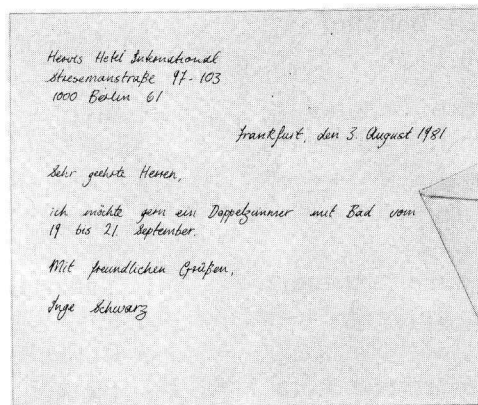 Hervis Hotel International
Stresemanstraße 97-103
1000 Berlin 61
Frankfurt, den 3. August 1981
Sehr geehrte Herren,
ich möchte gern ein Doppelzimmer mit Bad vom
19 bis 21. September.
Mit freundlichen Grüßen,
Inge Schwarz